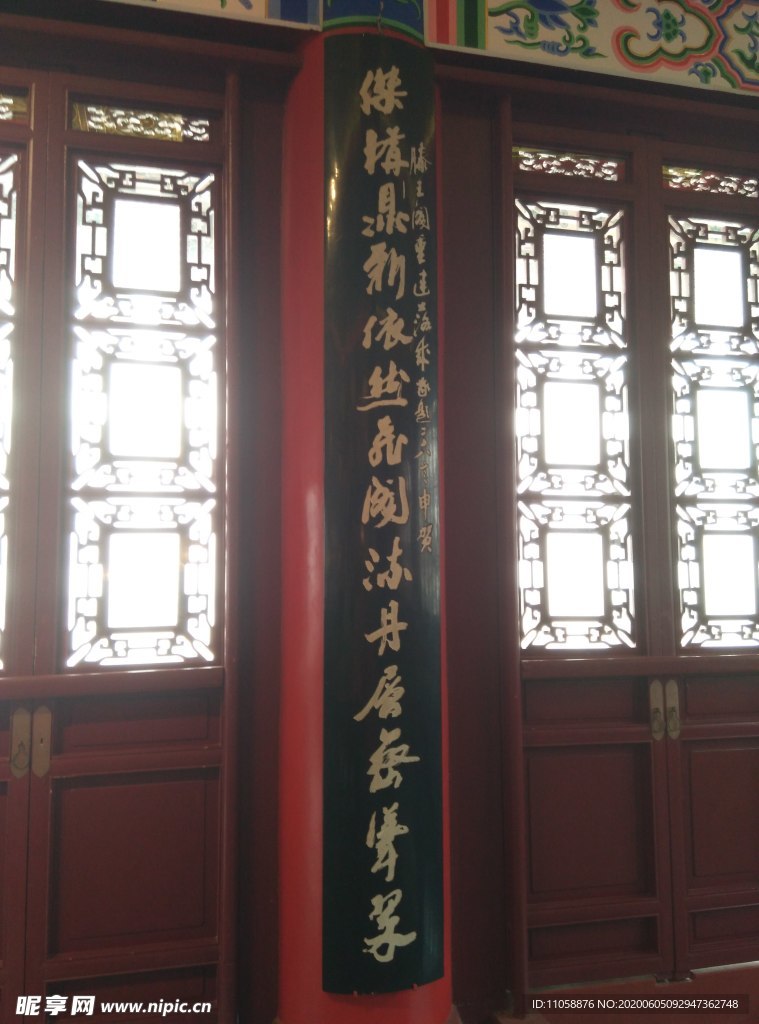 傑構鼎新依然飛閣流丹層巒聳翠
滕王閣重建落成
申賀
昵享网 www.nipic.cn
ID:11058876 NO:20200605092947362748